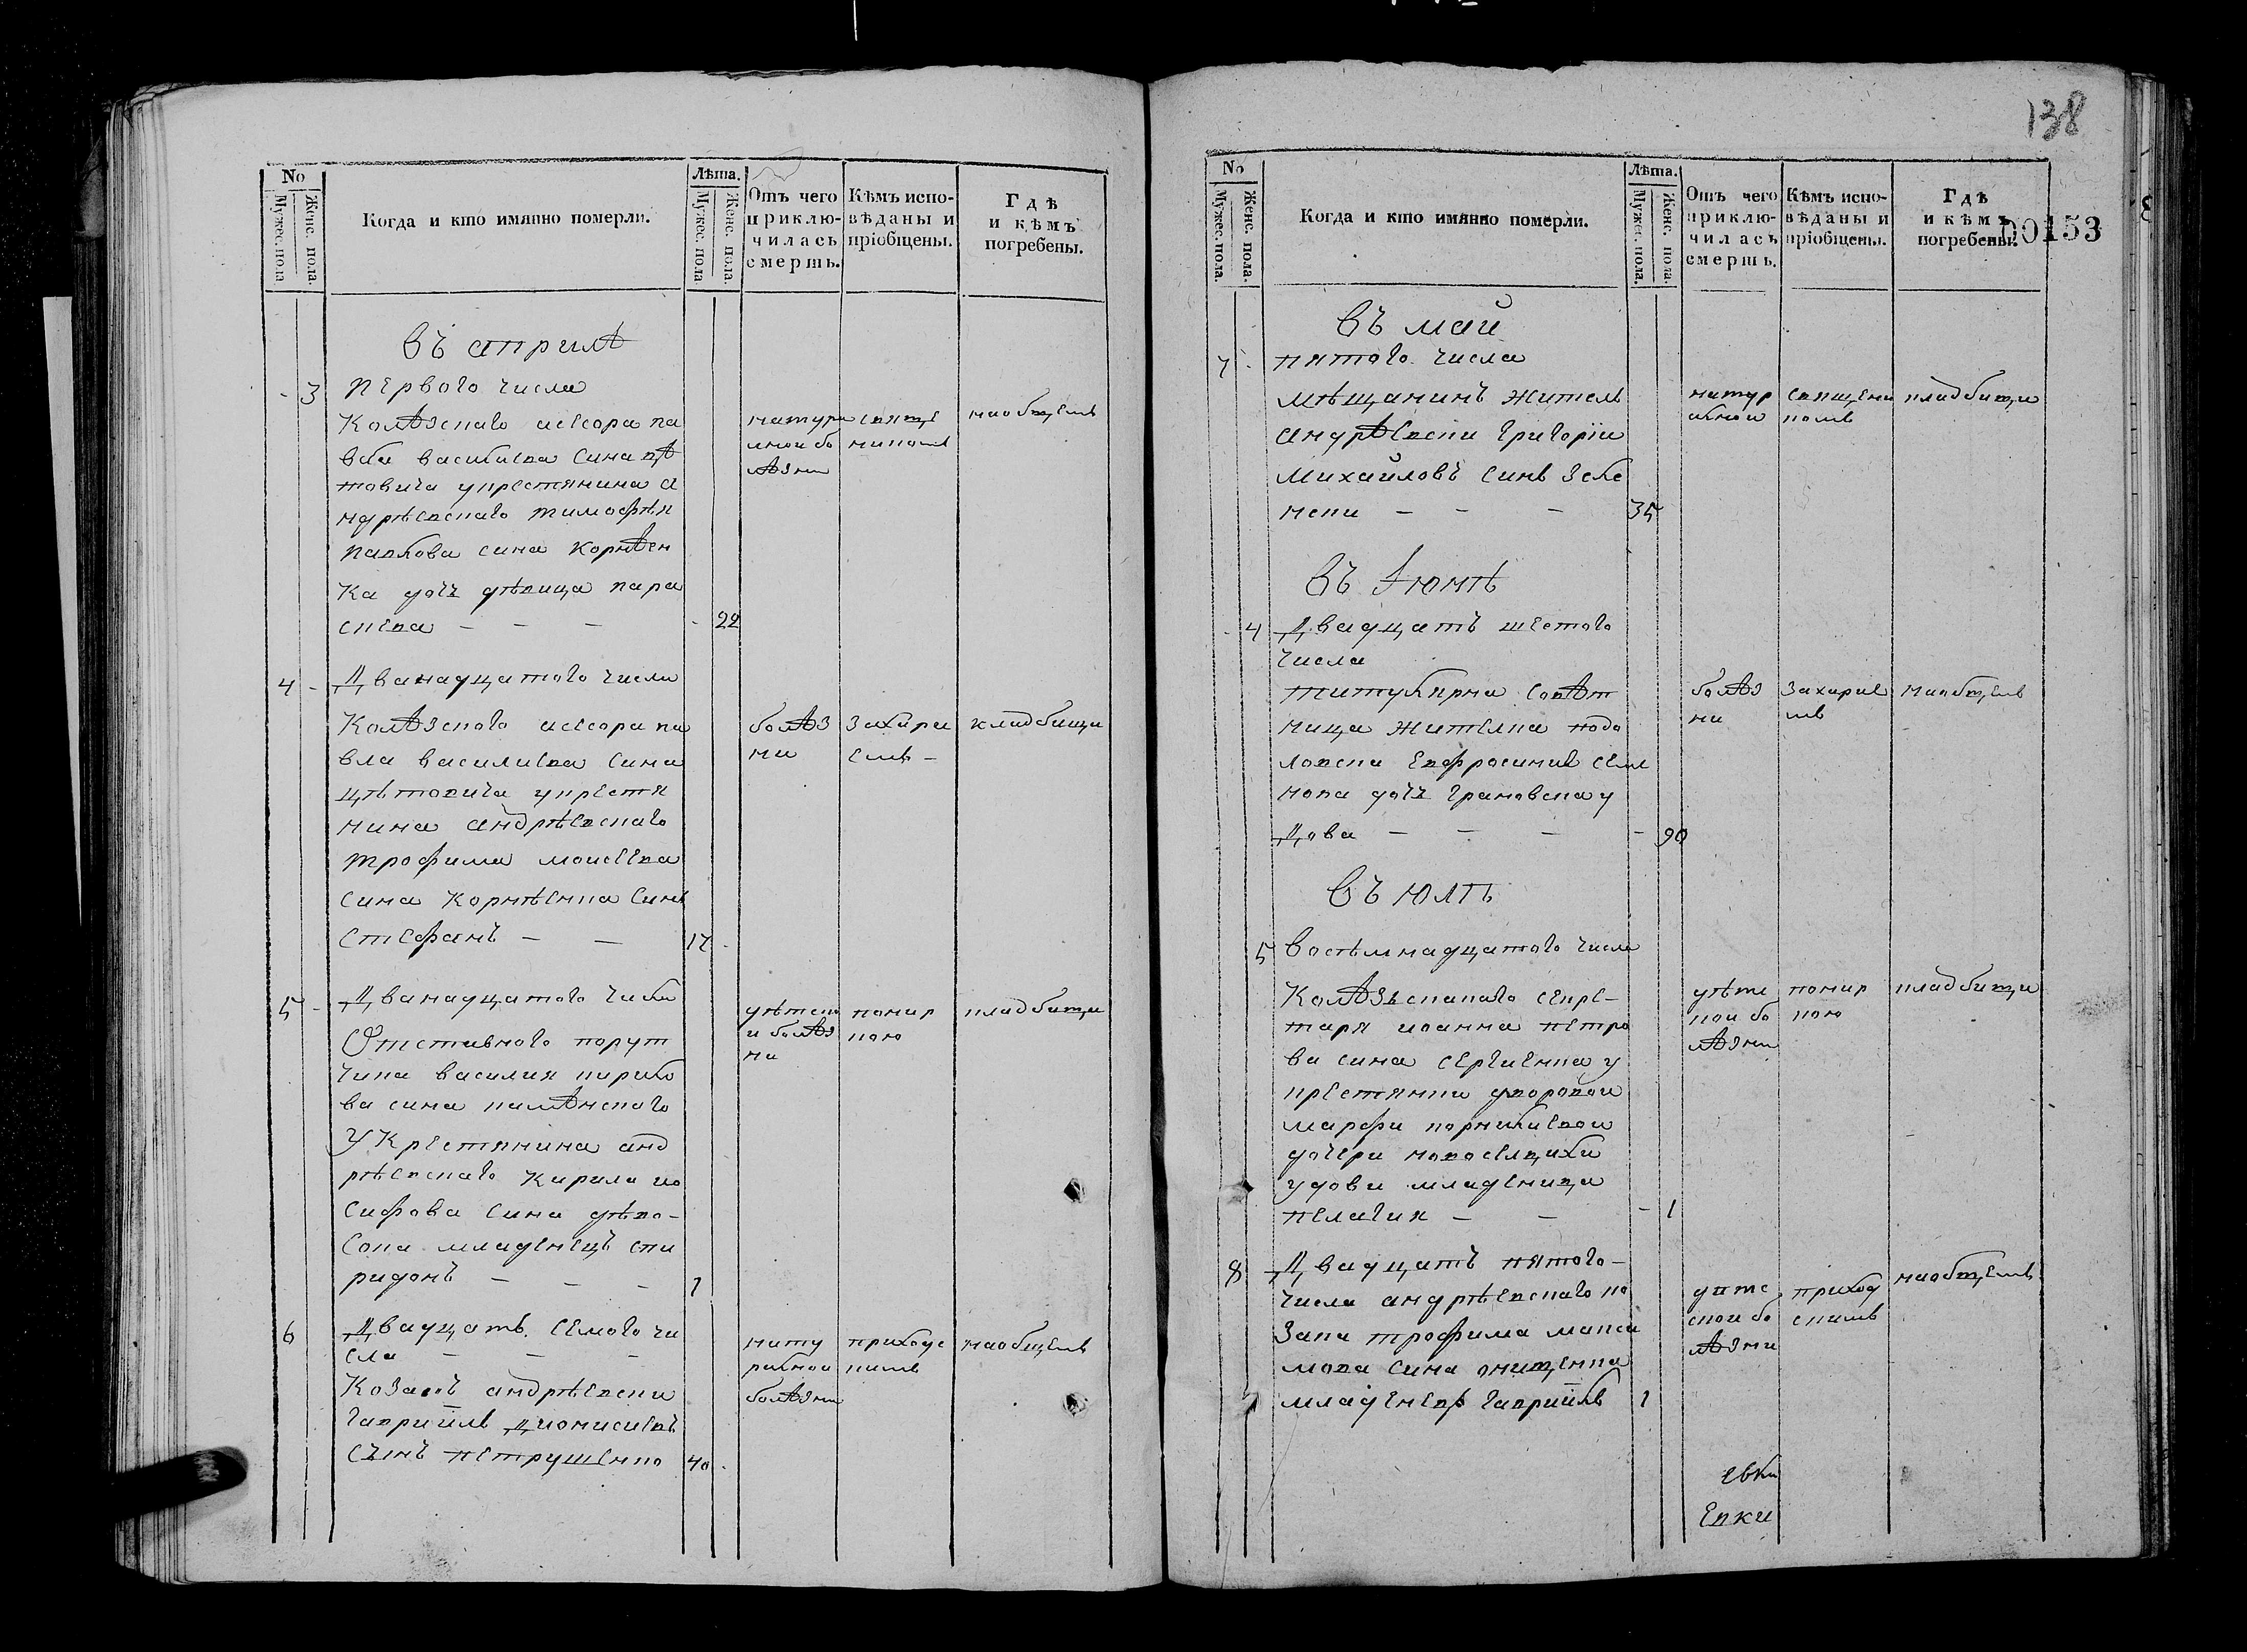 138
00153
No
Мужес. пола
Женс. пола.
Когда и кто имянно померли.
Лѣта.
Мужес. пола
Женс. пола
Отъ чего
приклю-
чилась
смерть.
Кѣмъ испо-
вѣданы и
пріобщены.
Гдѣ
и кѣмъ
погребены.
въ априлѣ
3
первого числа
Колѣзского асесора па
вла василиева сина цѣ
товича укрестянина а
ндрѣевского тимофѣя
павлова сина корнѣен
ка дочъ дѣвица пара
скева
22
натура
лной бо
лѣзни
свяще
ником
наобщемъ
4
Дванадцатого числа
Колѣзского асесора па
вла василиева сина
цѣтовича укрестя
нина андрѣевского
трофима моисеева
сина корнѣенка синъ
стефанъ
17
болѣз
ни
Захари
емъ
кладбищи
5
Дванадцатого числа
Отставного порут
чика василия кирило
ва сина
У Крестянина анд
рѣевского Кирила ио
сифова сина
младенецъ спи
ридонъ
1
дѣтско
и болѣз
ни
кладбищи
6
Двадцать семого чи
сла
Козакъ андрѣевски
гавриилъ дионисиевъ
сынъ петрушенко
40
нату
ралной
болѣзни
приходс
кимъ
наобщемъ
No
Мужес. пола.
Женс. пола.
Когда и кто имянно померли.
Лѣта.
Мужес. пола.
Женс. пола.
Отъ чего
приклю-
чилась
смерть.
Кѣмъ испо-
вѣданы и
пріобщены.
Гдѣ
и кѣмъ
погребены.
въ май
7
пятого числа
мѣщанинъ житель
андрѣевски григории
михайловъ синъ
35
натур
алной
священи
комъ
кладбищи
въ Июнѣ
4
Двадцать шестого
числа
титулярна совѣт
ница жителка подо
ловски евфросиния семе
нова дочъ грановска у
дова
90
болѣз
ни
Захарие
мъ
наобщемъ
въ юлѣ
5
восѣмнадцатого числа
Колѣзъскаго секре-
таря иоанна петро
ва сина сергиенка у
крестянки дворовой
марфи корнилиевой
дочери
удови младеница
пелагия
1
дѣтс
кои бо
лѣзни
кладбищи
8
Двадцать пятого
числа андрѣевского ко
зака трофима макси
мова сина онищенка
младенецъ гавриилъ
1
дитс
скои бо
лѣзни
приход
скимъ
наобщемъ